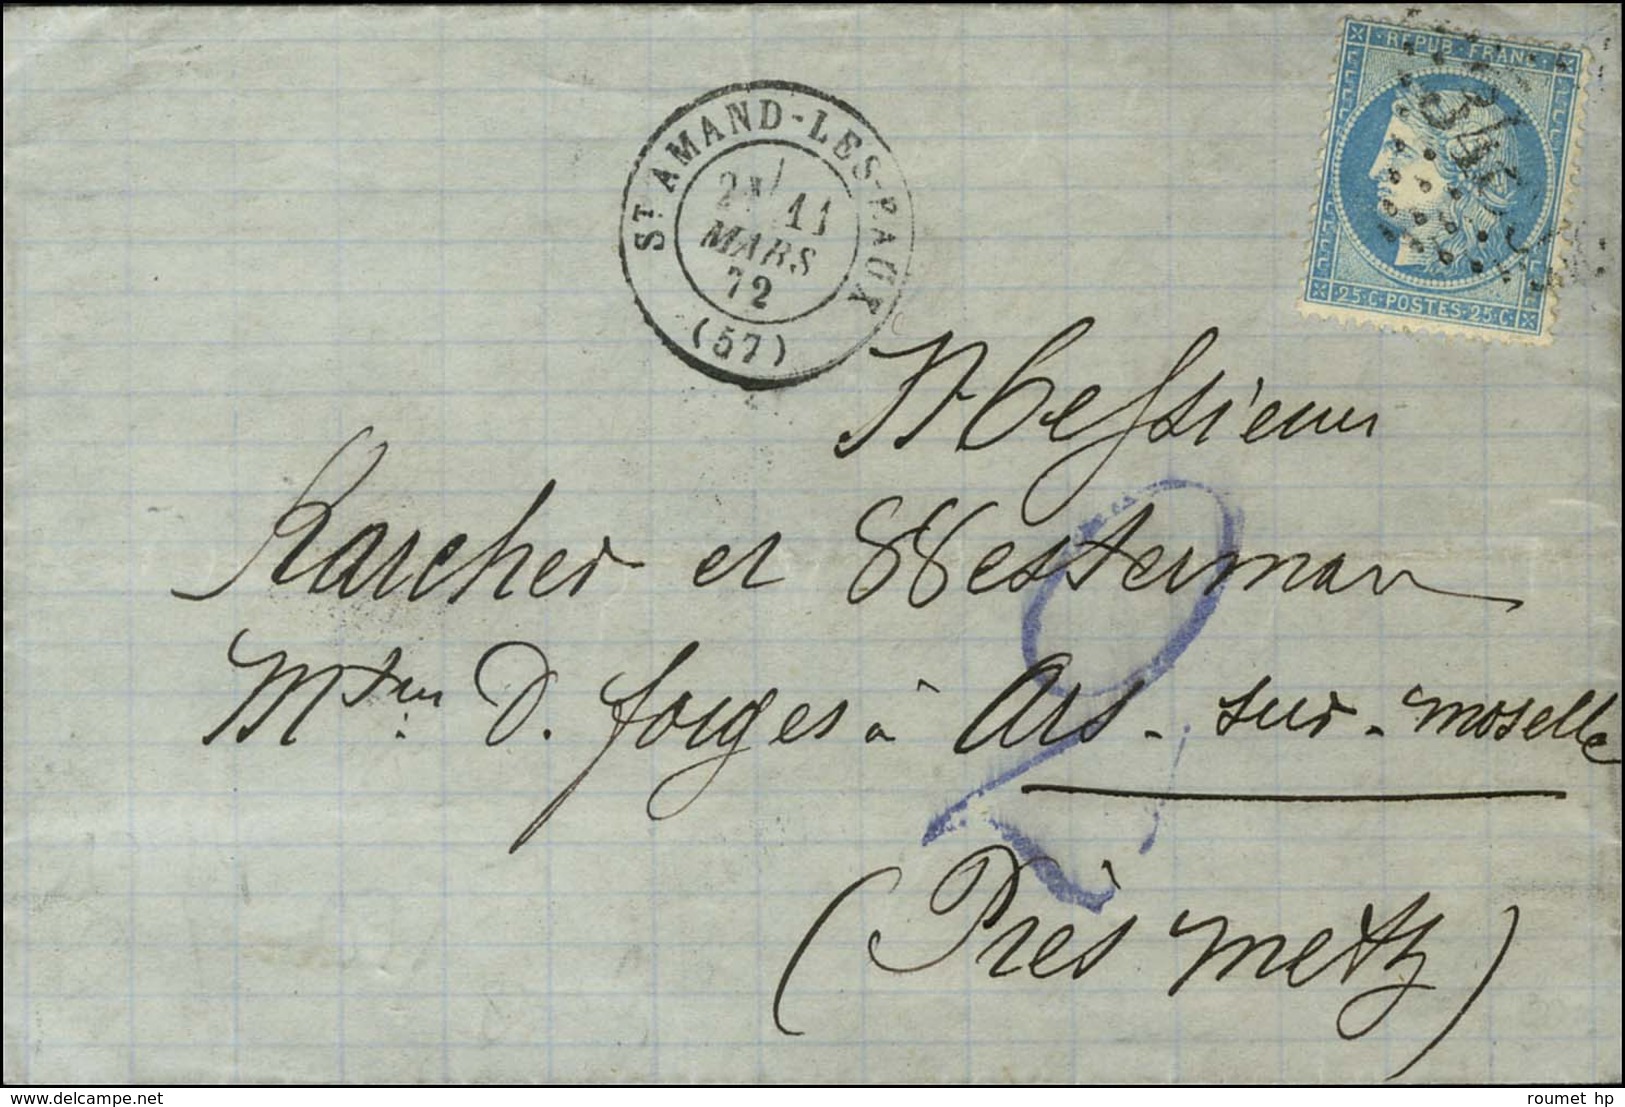 REPUB · FRANC
25 · C · POSTES · 25 · C ·
ST AMAND-LES-EAUX
11
MARS
72
(57)
Messieurs
Karcher et Westerman
Mtres D. forges à Ars-sur-Moselle
(Près Metz)
2
roumet hp